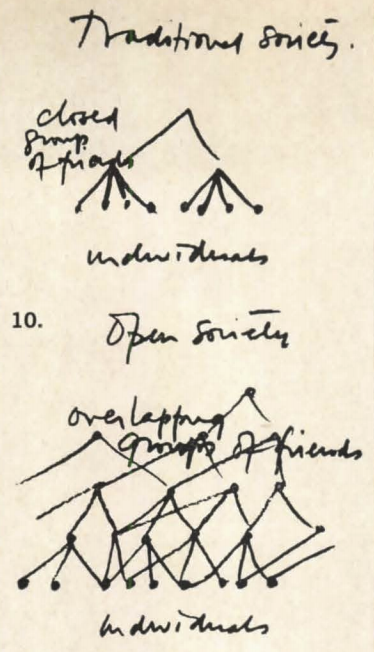 Traditional society.
closed
group
of friends
individuals
10.
Open society
overlapping
groups of friends
Individuals